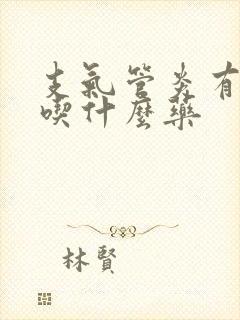 支氣管炎有
喫什麼藥
林賢